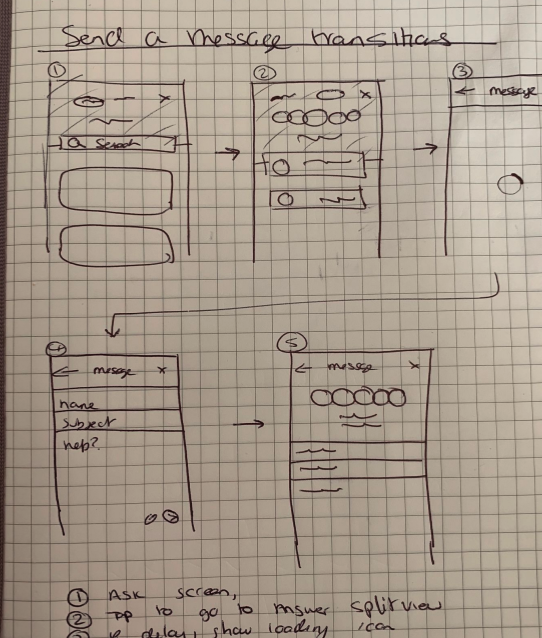 Send a message transitions
① ② ③
x x ← message
Search
④ ⑤
← message x ← message x
name
subject
help?
① Ask screen,
② tap to go to answer splitview
③ if delay, show loading icon